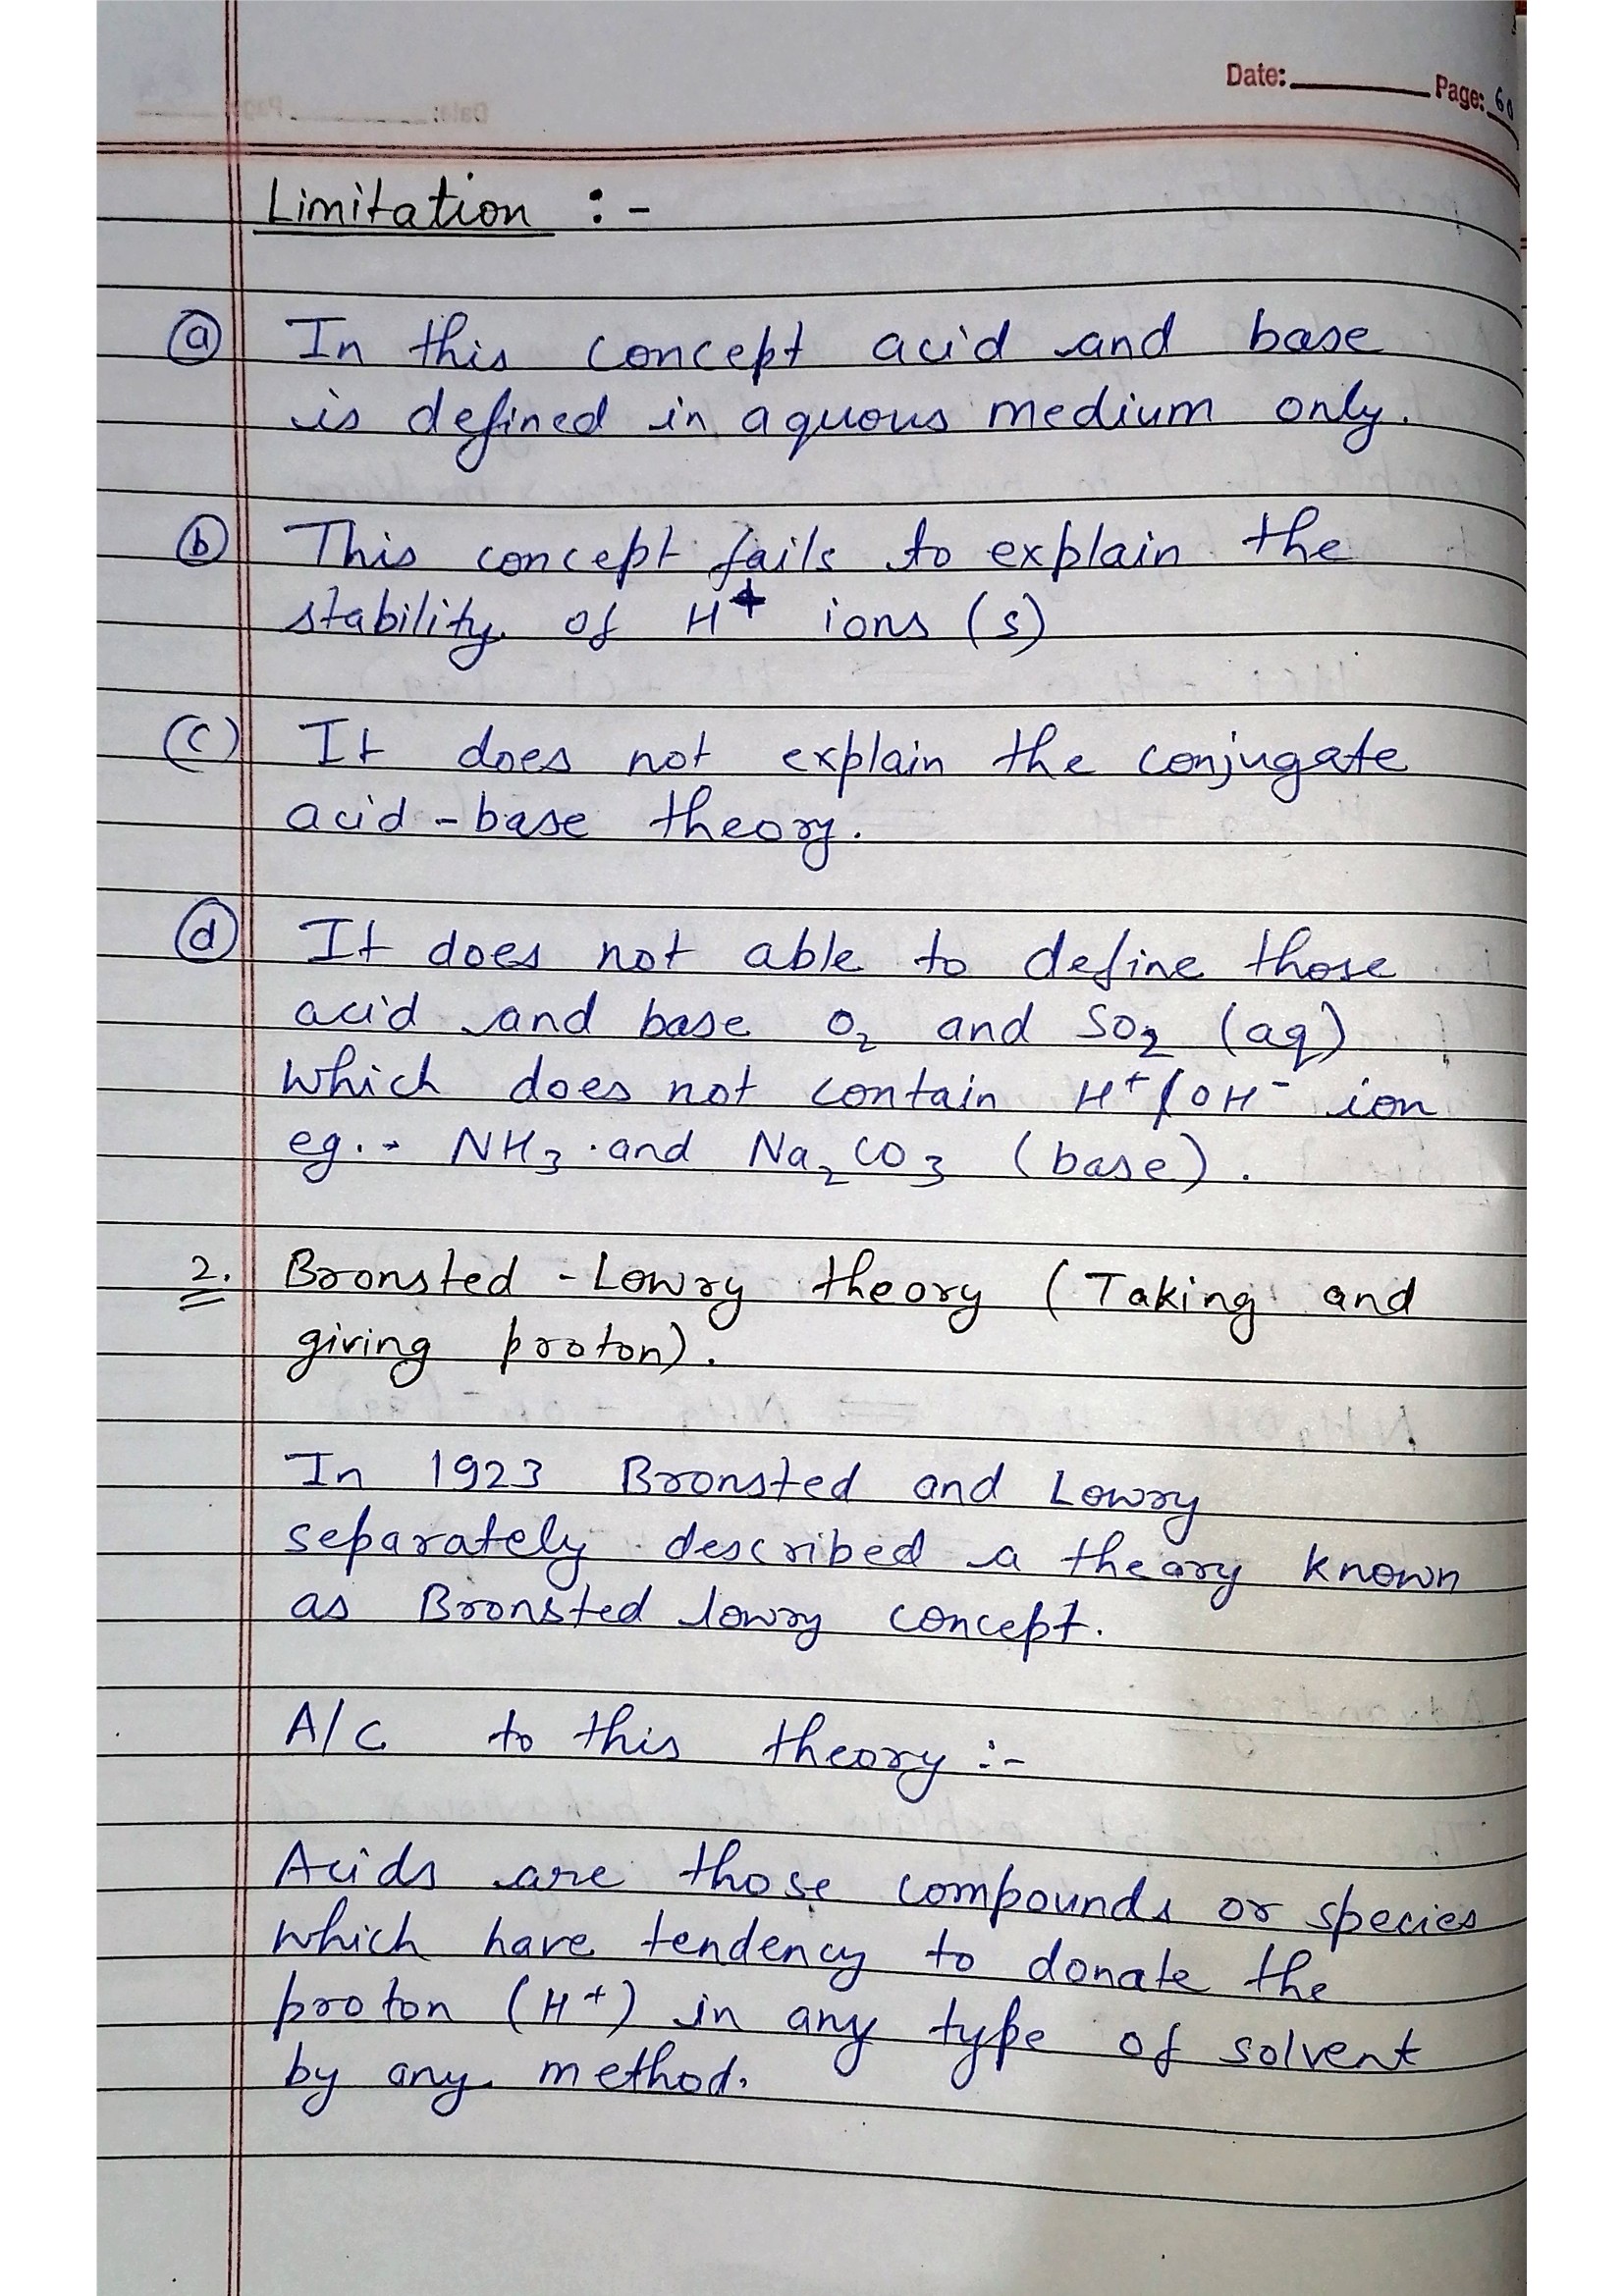 Date: Page: 60
Limitation :-
(a) In this concept acid and base
is defined in aquous medium only.
(b) This concept fails to explain the
stability of H⁺ ions (s)
(c) It does not explain the conjugate
acid-base theory.
(d) It does not able to define those
acid and base O₂ and SO₂ (aq)
which does not contain H⁺/OH⁻ ion
eg.→ NH₃ and Na₂CO₃ (base).
2. Bronsted-Lowry theory (Taking and
giving proton).
In 1923 Bronsted and Lowry
separately described a theory known
as Bronsted lowry concept.
A/c to this theory :-
Acids are those compounds or species
which have tendency to donate the
proton (H⁺) in any type of solvent
by any method.